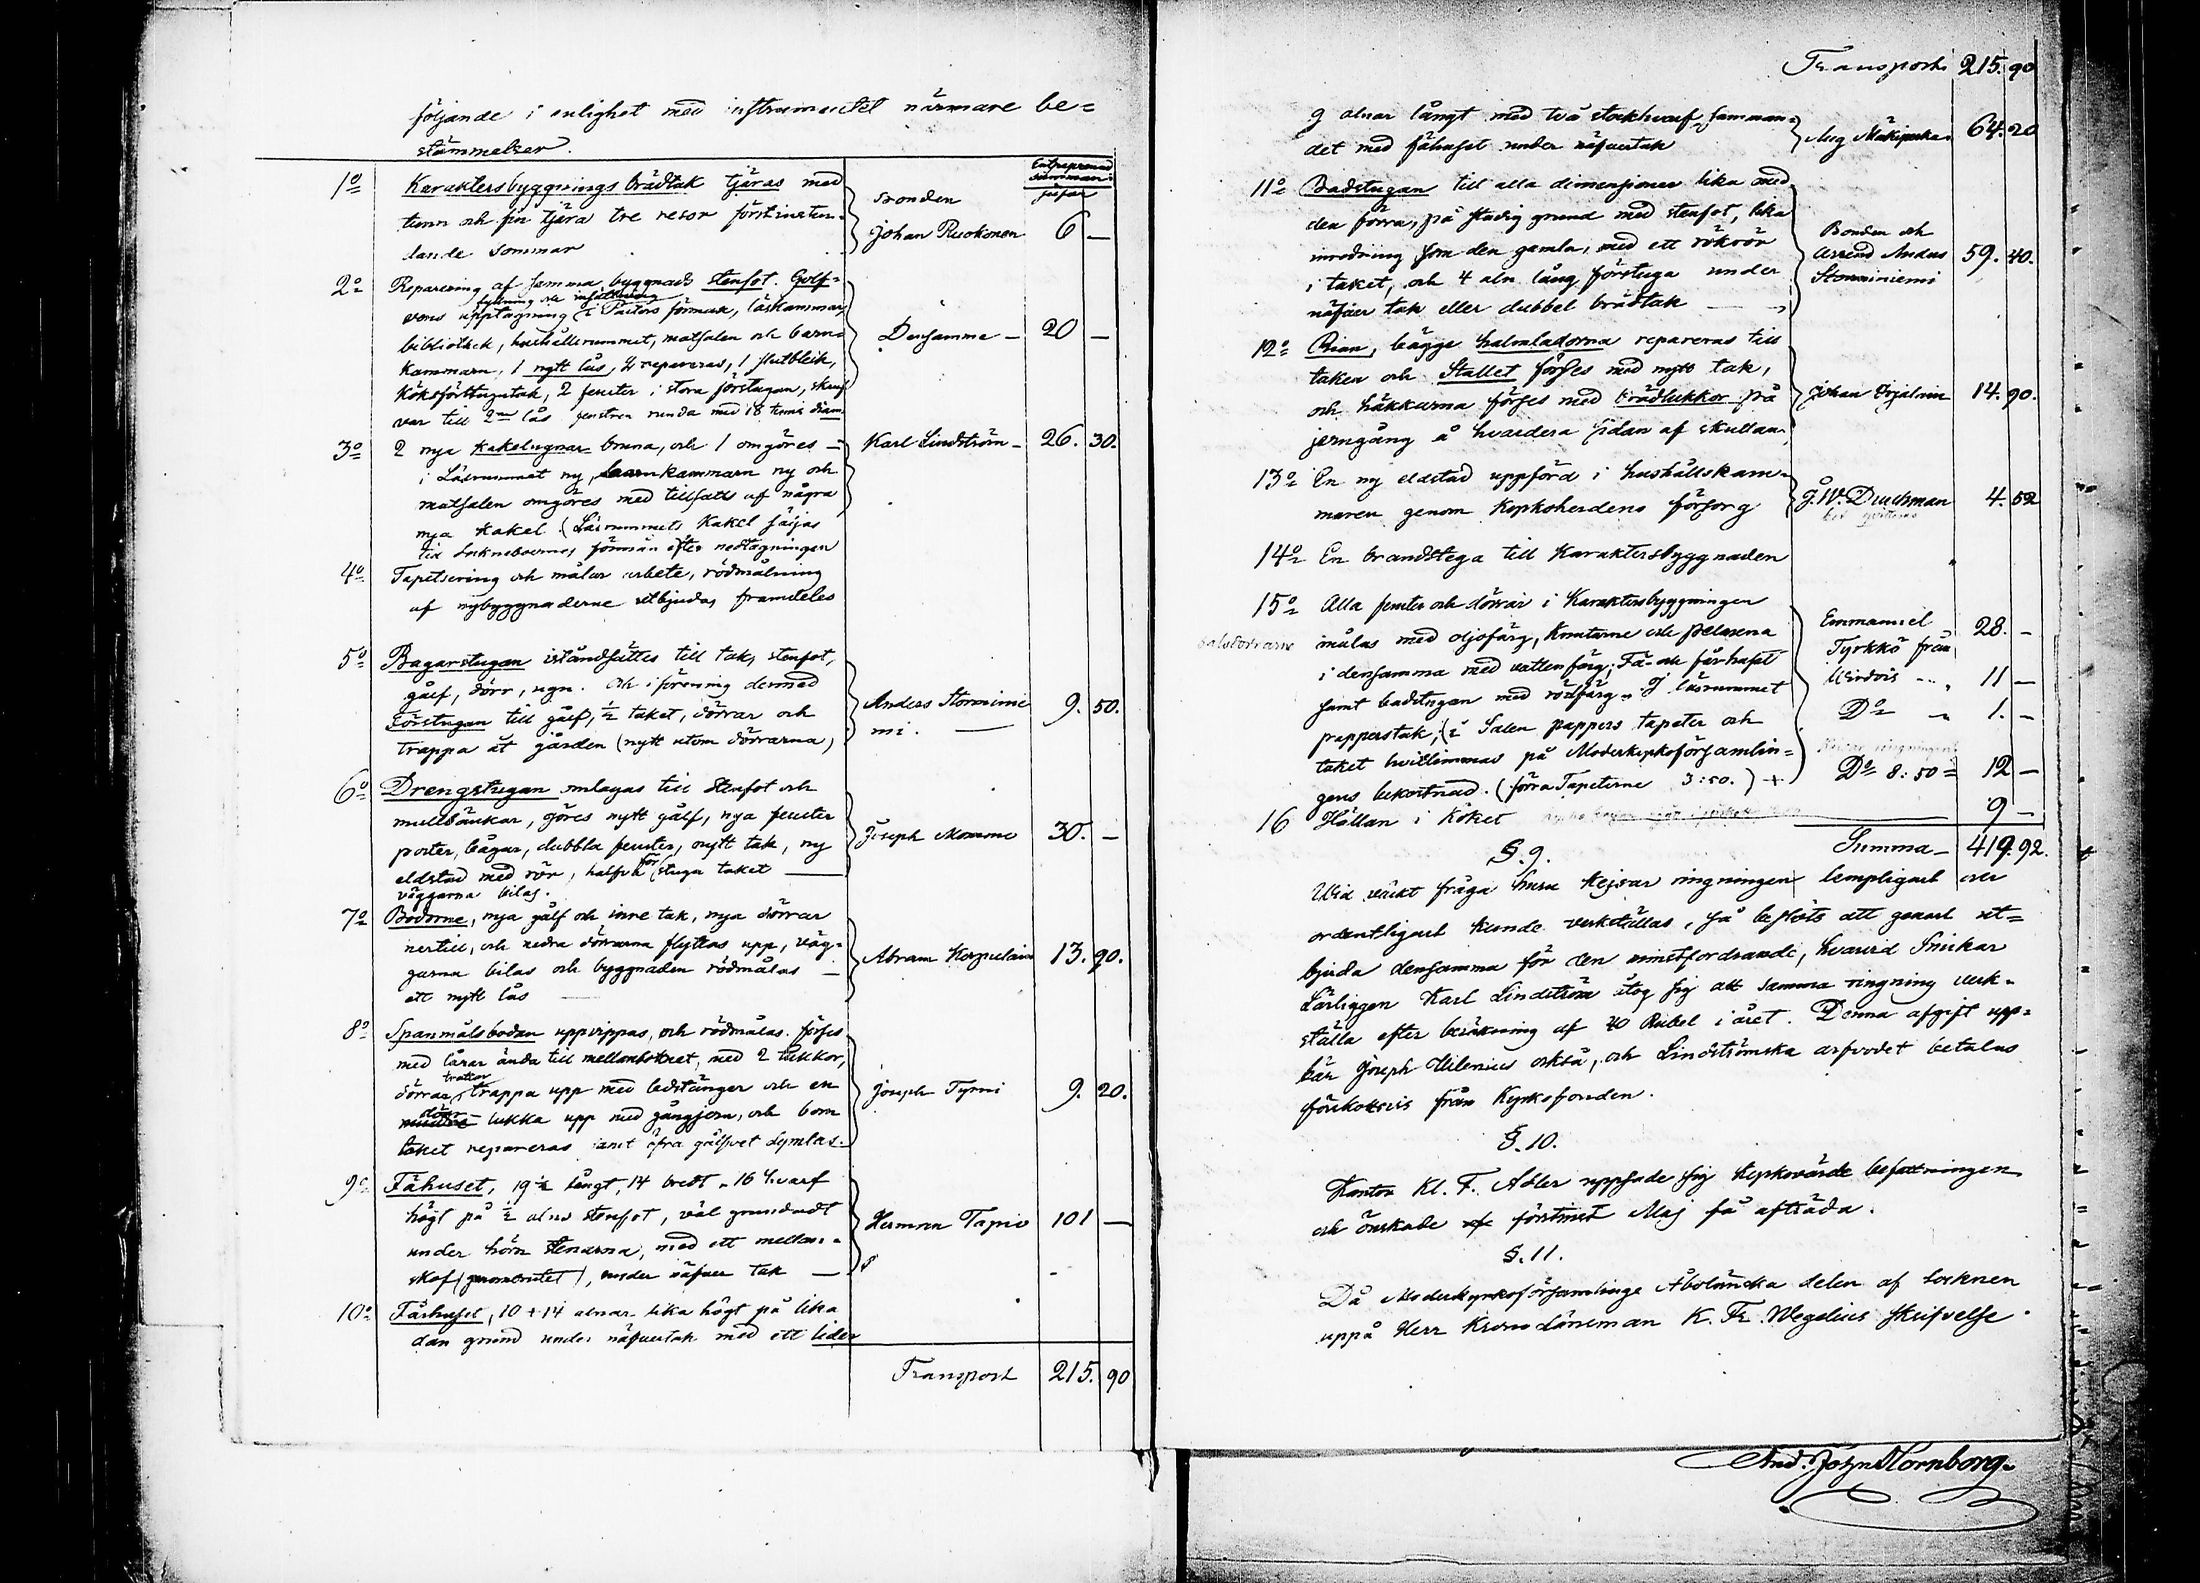 följande i enlighet med instrumentet närmare be=
stämmelser.
Entreprenad
summan
1o Karaktersbyggnings brädtak tjäras med
tunn och fin tjära tre resor förstinstun-
dande sommar
Bonden
Johan Ruokonen 6 —
2o Reparering af samma byggnads stenfot. Golf-
vens upptagning fyllning och i Pastors förmak, läskammar
bibliothek, hushållsrummet, matsalen och barn-
kammarn, 1 nytt lås, 4 repareras, 1 slutbleck,
köksförstugutak, 2 fenster i stora förstugan, skruf
var till 2ne lås fenstren runda med 18 tums diam
Densamme — 20 —
3o 2 nya kakelugnar bruna, och 1 omgöres —
i Läsrummet ny, barnkammarn ny och
matsalen omgöres med tillsatts af några
nya kakel. (Läsrummets kakel säljas
till Socknboernes förmån efter nedtagningen
Karl Lindström — 26. 30.
4o Tapetsering och målar arbete, rödmålning
af nybyggnaderne utbjudas framdeles
5o Bagarstugan iståndsättes till tak, stenfot,
gålf, dörr, ugn. Och i förening dermed
Förstugan till gålf, ½ taket, dörrar och
trappa åt gården (nytt utom dörrarna)
Anders Storniinie
mi. — 9. 50.
6o Drengstugan omlagas till stenfot och
mullbänkar, göres nytt gålf, nya fenster
poster, bågar, dubbla fenster, nytt tak, ny
eldstad med rör, halfva förstuga taket —
väggarna bilas.
Joseph Momme 30. —
7o Bodorne, nya gålf och inre tak, nya dörrar
nertill, och nedra dörrarna flyttas upp, väg-
garna bilas och byggnaden rödmålas —
ett nytt lås —
Abram Korpulain 13. 90.
8o Spanmålsboden uppvippas, och rödmålas. förses
med lårar ända till mellanbottnet, med 2 luckor,
dörrar, trappa upp med ledstänger och en
lukka upp med gångjern, och bom
taket repareras samt öfra gålfvet dymlas.
Joseph Tyrni 9. 20.
9o Fähuset, 19½ långt, 14 bredt, 16 hvarf
högt på ½ alns stenfot, väl grundadt
under hörn stenarna, med ett mellan-
skof, under näfver tak —
Herman Tapio 101 —
10o Fårhuset, 10 + 14 alnar lika högt på lika
dan grund under näfvertak med ett lider
Transport 215. 90
Transport 215. 90
9 alnar långt med två stockhvarf samman-
det med fähuset under näfvertak
Aug Mäkipaka 64. 20
11o Badstugan till alla dimensioner lika med
den förra, på stadig grund med stenfot, lika
inredning som den gamla, med ett rökrör
i taket, och 4 aln lång förstuga under
näfver tak eller dubbel brädtak —
Bonden och
Arrend Anders
Storniiniemi 59. 40.
12o Rian, bägge halmladorna repareras till
taken och Stallet förses med nytt tak,
och häkkarna förses med brädlukkor på
jerngång å hvardera sidan af skullan
Johan Orjalain 14. 90.
13o En ny eldstad uppförd i hushållskam-
maren genom Kyrkoherdens försorg
J. W. Duchman 4. 52
14o En brandstega till Karaktersbyggnaden
15o Alla fenster och dörrar i Karaktersbyggningen
målas med oljofärg, knutarne och pelarena
i densamma med vattenfärg; Fä- och fårhuset
samt badstugan med rödfärg. I läsrummet
papperstak; i Salen pappers tapeter och
taket hvitlimmas på Moderkyrkoförsamlin-
gens bekostnad. (förra Tapeterne 3:50.) +
Emmanuel
Tyrkkö från 28. —
Wirdois — 11 —
Do — 1. —
Do 8:50 = 12 —
16 Hällan i köket 9 —
Summa — 419. 92.
§. 9.
Wid väckt fråga huru kejsar ringningen lempligast och
ordentligast kunde verkställas, så beslöts att genast ut=
bjuda densamma för den minstfordrande, hvarvid Snickar
Lärlingen Karl Lindström åtog sig att samma ringning verk-
ställa efter beräkning af 40 Rubel i året. Denna afgift upp-
bär Joseph Wilenius också, och Lindströmska arfvodet betalas
förskottsvis från Kyrkofonden.
§. 10.
Kantor Kl. F. Adler uppsade sig kyrkovärds befattningen
och önskade förstinst. Maj få afträda.
§. 11.
Då Moderkyrkoförsamlings Åboländska delen af Socknen
uppå Herr Krono Länsman K. Fr. Wegelius skrifvelse
And. John Hornborg.